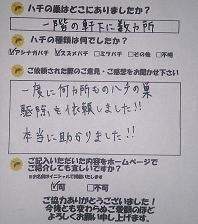 ハチの巣はどこにありましたか？
一階の軒下に数カ所
ハチの種類は何でしたか？
☑アシナガバチ ☑スズメバチ □ミツバチ □その他 □不明
ご依頼された際のご意見・ご感想をお聞かせ下さい
一度に何カ所ものハチの巣
駆除も依頼しました!!
本当に助かりました!!
ご記入いただいた内容をホームページで
ご紹介しても宜しいですか？
※お名前はイニシャルで掲載いたします
☑可 □不可
ご協力ありがとうございました！
今後とも変わらぬご愛顧の程と
よろしくお願い申し上げます。